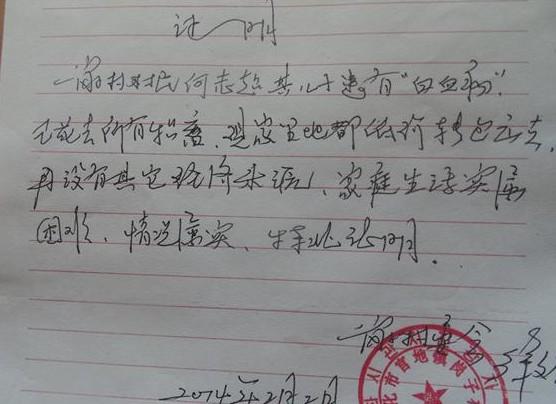 证明
村民何志超其子患有“白血病”，
花去所有积蓄，现家里地都低价转包出去，
再没有其它经济来源，家庭生活实属
困难，情况属实，特此证明。
村委会
2014年2月2日